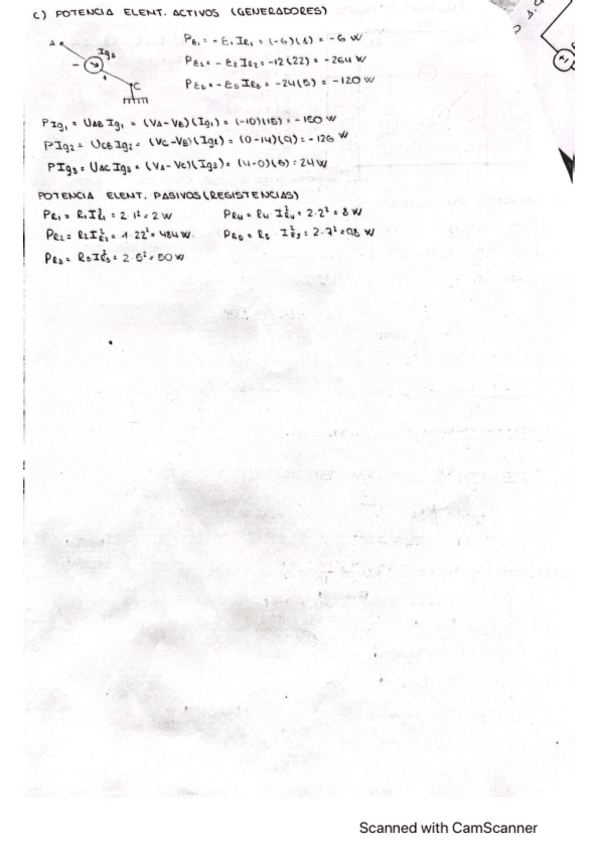 C) POTENCIA ELEMT. ACTIVOS (GENERADORES)
PE₁ = - E₁ IR₁ = (-6)(1) = -6 W
A Ig₃ PE₂ = - E₂ IR₂ = -12(22) = -264 W
- + C PE₅ = - E₅ IR₅ = -24(5) = -120 W
PIg₁ = UAB Ig₁ = (VA - VB)(Ig₁) = (-10)(15) = -150 W
PIg₂ = UCB Ig₂ = (VC - VB)(Ig₂) = (0-14)(9) = -126 W
PIg₃ = UAC Ig₃ = (VA - VC)(Ig₃) = (4-0)(6) = 24 W
POTENCIA ELEMT. PASIVOS (RESISTENCIAS)
PR₁ = R₁ I²R₁ = 2·1² = 2 W PR₄ = R₄ I²R₄ = 2·2² = 8 W
PR₂ = R₂ I²R₂ = 1·22² = 484 W PR₅ = R₅ I²R₅ = 2·7² = 98 W
PR₃ = R₃ I²R₃ = 2·5² = 50 W
Scanned with CamScanner